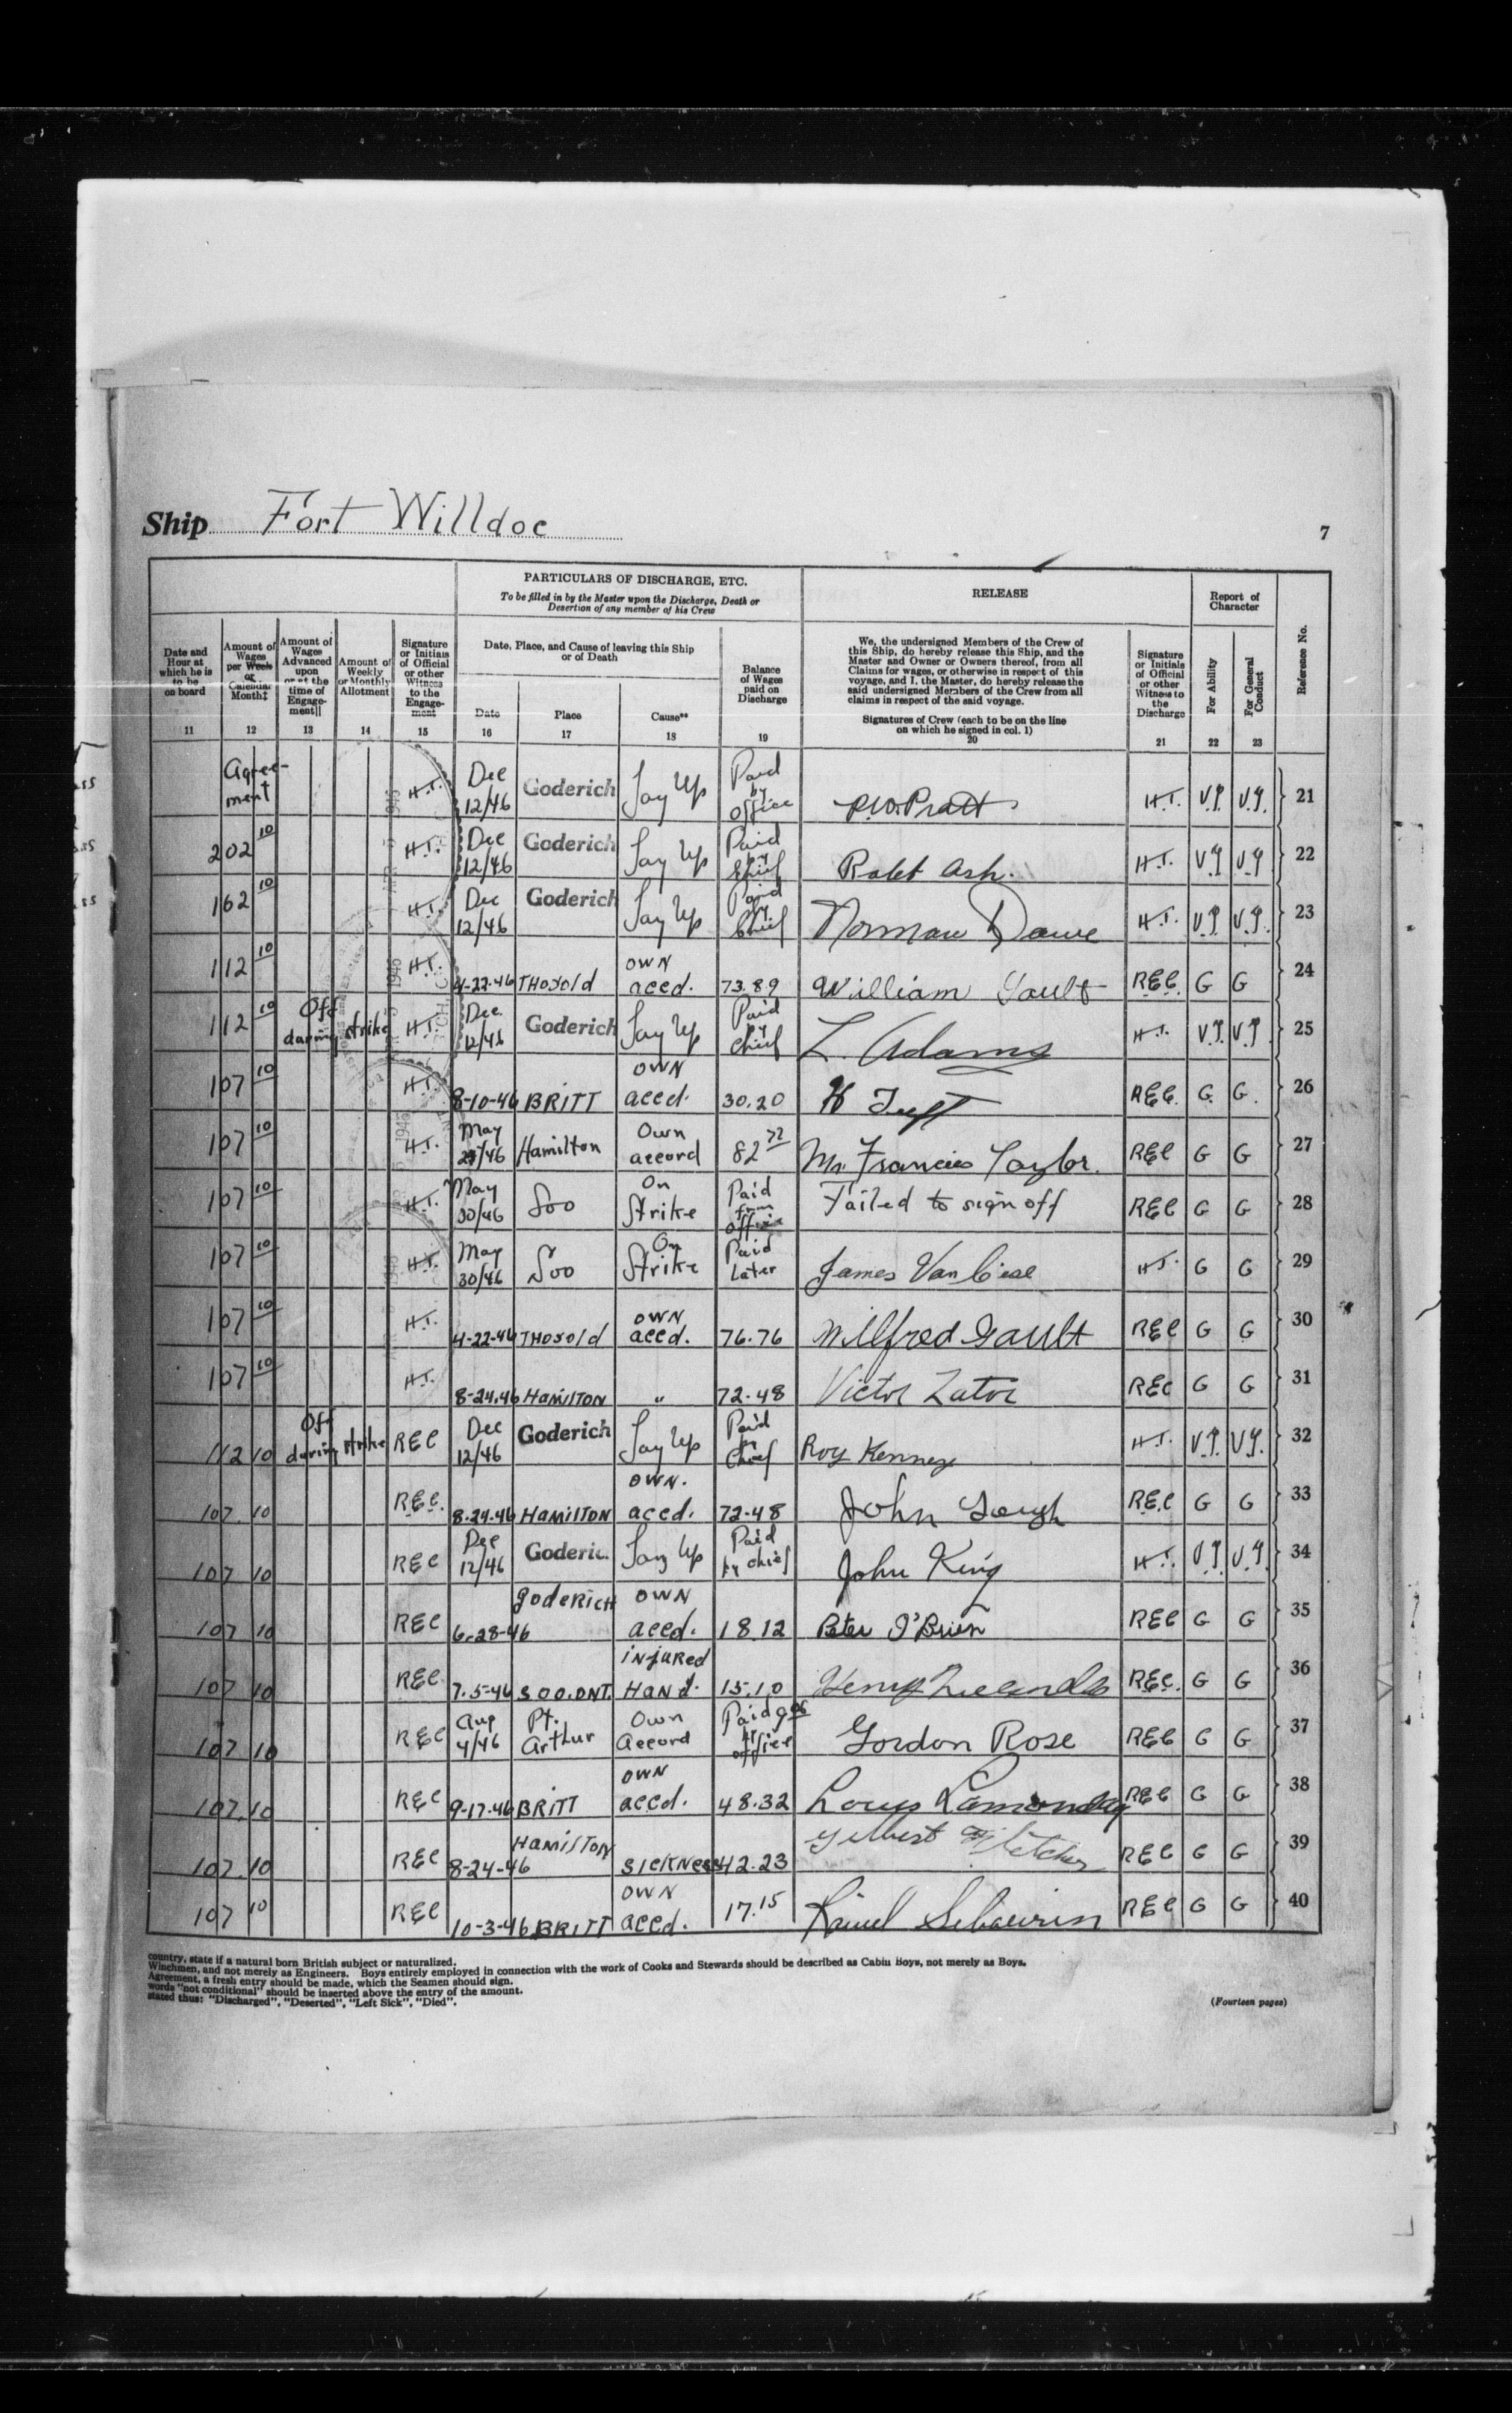 Ship Fort Willdoc
7
PARTICULARS OF DISCHARGE, ETC.
To be filled in by the Master upon the Discharge, Death or
Desertion of any member of his Crew
RELEASE
Report of
Character
Reference No.
Date and
Hour at
which he is
to be
on board
11
Amount of
Wages
per Week
or
Calendar
Month‡
12
Amount of
Wages
Advanced
upon
or at the
time of
Engage-
ment||
13
Amount of
Weekly
or Monthly
Allotment
14
Signature
or Initials
of Official
or other
Witness
to the
Engage-
ment
15
Date, Place, and Cause of leaving this Ship
or of Death
Date
16
Place
17
Cause**
18
Balance
of Wages
paid on
Discharge
19
We, the undersigned Members of the Crew of
this Ship, do hereby release this Ship, and the
Master and Owner or Owners thereof, from all
Claims for wages, or otherwise in respect of this
voyage, and I, the Master, do hereby release the
said undersigned Members of the Crew from all
claims in respect of the said voyage.
Signatures of Crew (each to be on the line
on which he signed in col. 1)
20
Signature
or Initials
of Official
or other
Witness to
the
Discharge
21
For Ability
22
For General
Conduct
23
Agree-ment H.T. Dec 12/46 Goderich Lay Up Paid by office P.W. Pratt H.T. V.G. V.G. 21
202 10 H.T. Dec 12/46 Goderich Lay Up Paid by Chief Robt Ash. H.T. VG VG 22
162 10 H.T. Dec 12/46 Goderich Lay Up Paid by Chief Norman Dawe H.T. V.G. V.G. 23
112 10 H.T. 4-22-46 THOROld OWN accd. 73.89 William Gault REC. G G 24
112 10 Off during strike H.T. Dec. 12/46 Goderich Lay Up Paid by Chief L. Adams H.T. V.G. V.G. 25
107 10 H.T. 8-10-46 BRITT OWN accd. 30.20 H REC. G. G. 26
107 10 H.T. May /46 Hamilton Own accord 82 72 Mr. Francis Taylor. REC G G 27
107 10 H.T. May 30/46 Soo On Strike Paid from office Failed to sign off REC G G 28
107 10 H.T. May 30/46 Soo On Strike Paid Later James Van H.T. G G 29
107 10 H.T. 4-22-46 THOROld OWN accd. 76.76 Wilfred Gault REC G G 30
107 10 H.T. 8-24-46 HAMILTON " 72.48 Victor REC G G 31
112 10 Off during strike REC Dec 12/46 Goderich Lay Up Paid by Chief Roy Kenney H.T. V.G. V.G. 32
107 10 REC. 8-24-46 HAMILTON OWN. accd. 72-48 John Gough REC G G 33
107 10 REC Dec 12/46 Goderic. Lay Up Paid by Chief John King H.T. V.G. V.G. 34
107 10 REC 6-28-46 goderich OWN accd. 18.12 Peter O'Brien REC G G 35
107 10 REC 7-5-46 SOO.ONT. injured Hand. 15.10 Henry REC. G G 36
107 10 REC Aug 4/46 Pt. Arthur Own Accord Paid 9 06 by office Gordon Rose REC G G 37
107.10 REC 9-17-46 BRITT OWN accd. 48.32 REC G G 38
107.10 REC 8-24-46 HAMILTON SICKNess 42.23 Gilbert Fletcher REC G G 39
107 10 REC 10-3-46 BRITT OWN accd. 17.15 REC G G 40
country, state if a natural born British subject or naturalized.
Winchmen, and not merely as Engineers. Boys entirely employed in connection with the work of Cooks and Stewards should be described as Cabin Boys, not merely as Boys.
Agreement, a fresh entry should be made, which the Seamen should sign.
words "not conditional" should be inserted above the entry of the amount.
stated thus: "Discharged", "Deserted", "Left Sick", "Died".
(Fourteen pages)